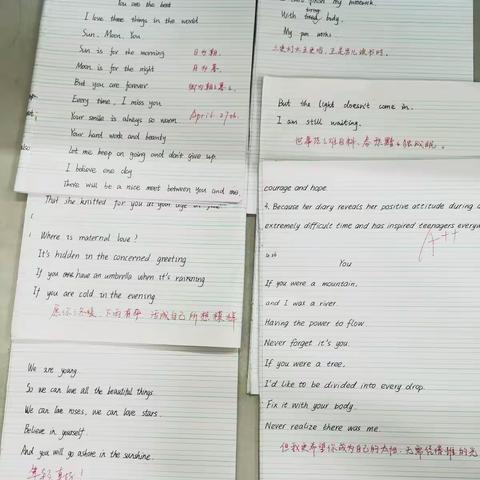 You are the best
I love three things in the world
Sun, Moon, You
Sun is for the morning 日为朝,
Moon is for the night 月为暮,
But you are forever
Every time, I miss you
Your smile is always so warm April 27th.
Your hard work and beauty
Let me keep on going and don't give up.
I believe one day
There will be a nice meet between you and me.
That she knitted for you
Where is maternal love?
It's hidden in the concerned greeting
If you have an umbrella when it's rainning
If you are cold in the evening.
We are young
So we can love all the beautiful things.
We can love roses, we can love stars.
Believe in yourself.
And you will go ashore in the sunshine.
finish my homework
With tiring body.
My pen works.
But the light doesn't come in.
I am still waiting.
courage and hope
4. Because her diary reveals her positive attitude during
extremely difficult time and has inspired teenagers
A++
You
If you were a mountain,
and I was a river.
Having the power to flow.
Never forget it's you.
If you were a tree.
I'd like to be divided into every drop.
Fix it with your body.
Never realize there was me.
但我更希望你成为自己的太阳,无需凭借谁的光